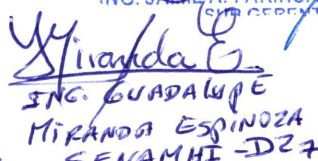 SUB GERENT
Miranda E.
ING. GUADALUPE
MIRANDA ESPINOZA
SENAMHI - DZ7